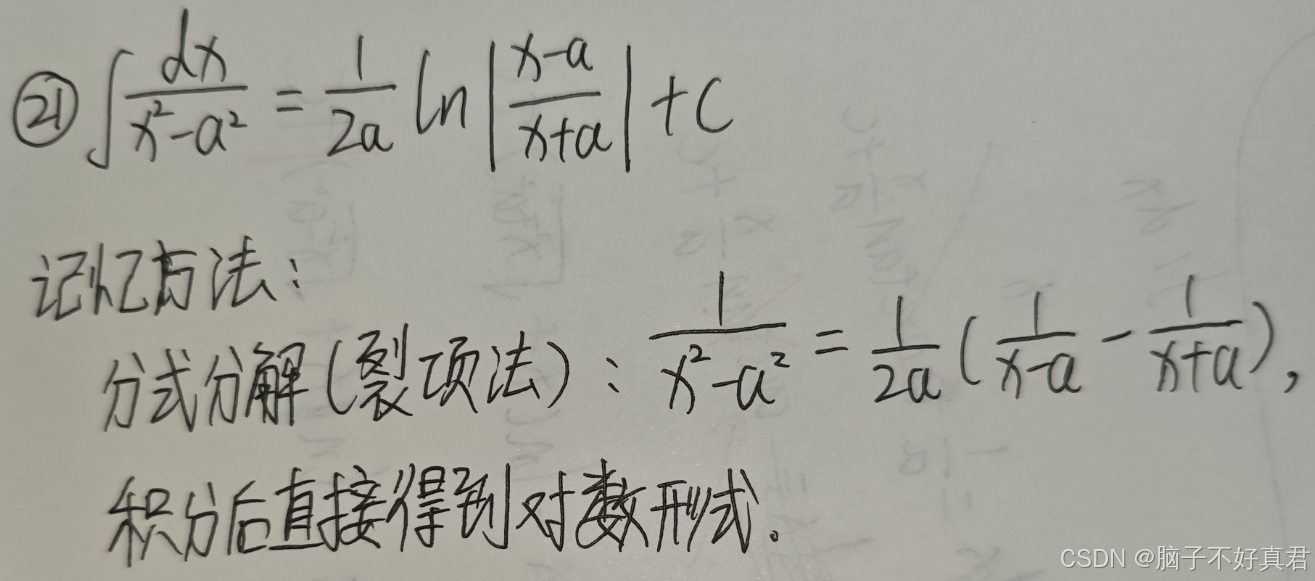 ㉑ ∫ dx/(x²-a²) = 1/(2a) ln|(x-a)/(x+a)| + C
记忆方法：
分式分解（裂项法）：1/(x²-a²) = 1/(2a) (1/(x-a) - 1/(x+a))，
积分后直接得到对数形式。
CSDN @脑子不好真君